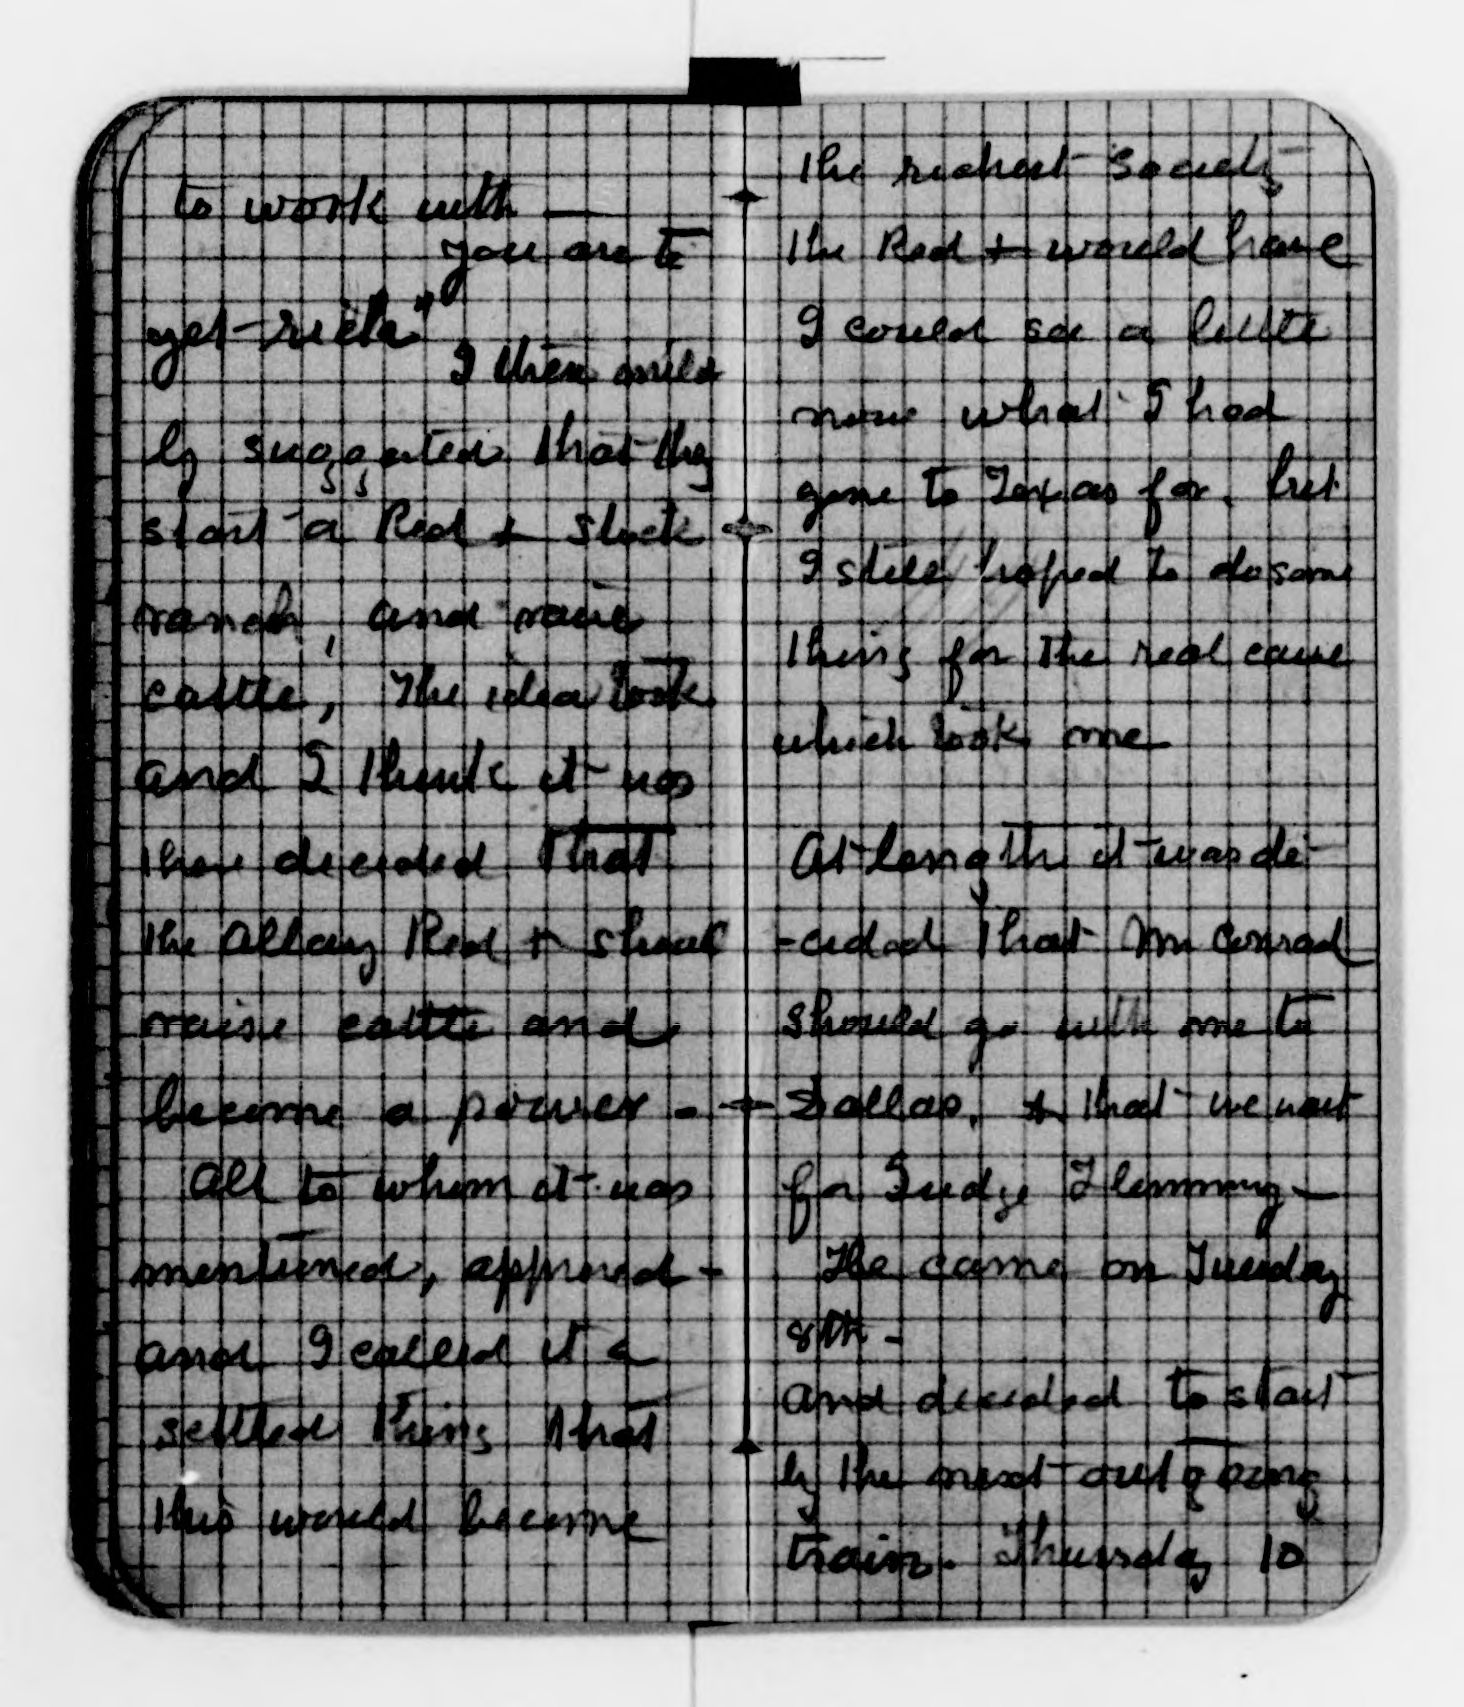 to work with —
you are to
get rich"
I then mild
ly suggested that they
start a Red + stock
ranch, and raise
cattle, The idea took
and I think it was
then decided that
the Albany Red + should
raise cattle and
become a power -
All to whom it was
mentioned, approved -
and I called it a
settled thing that
this would become
the richest society
the Red + would have
I could see a little
now what I had
gone to Texas for, but
I still hoped to do some
thing for the real cause
which took me
At length it was de-
-cided that Mr Conrad
should go with me to
Dallas, & that we wait
for Judge Flemming —
He came on Tuesday
8th -
and decided to start
by the next outgoing
train. Thursday 10